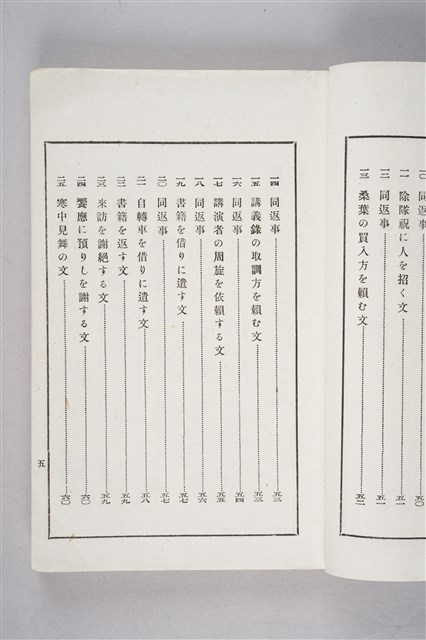 一〇 同返事……五〇
一一 除隊祝に人を招く文……五一
一二 同返事……五一
一三 桑葉の買入方を頼む文……五二
一四 同返事……五三
一五 講義錄の取調方を賴む文……五三
一六 同返事……五四
一七 講演者の周旋を依賴する文……五五
一八 同返事……五六
一九 書籍を借りに遣す文……五七
二〇 同返事……五七
二一 自轉車を借りに遣す文……五八
二二 書籍を返す文……五九
二三 來訪を謝絶する文……五九
二四 饗應に預りしを謝する文……六〇
二五 寒中見舞の文……六〇
五